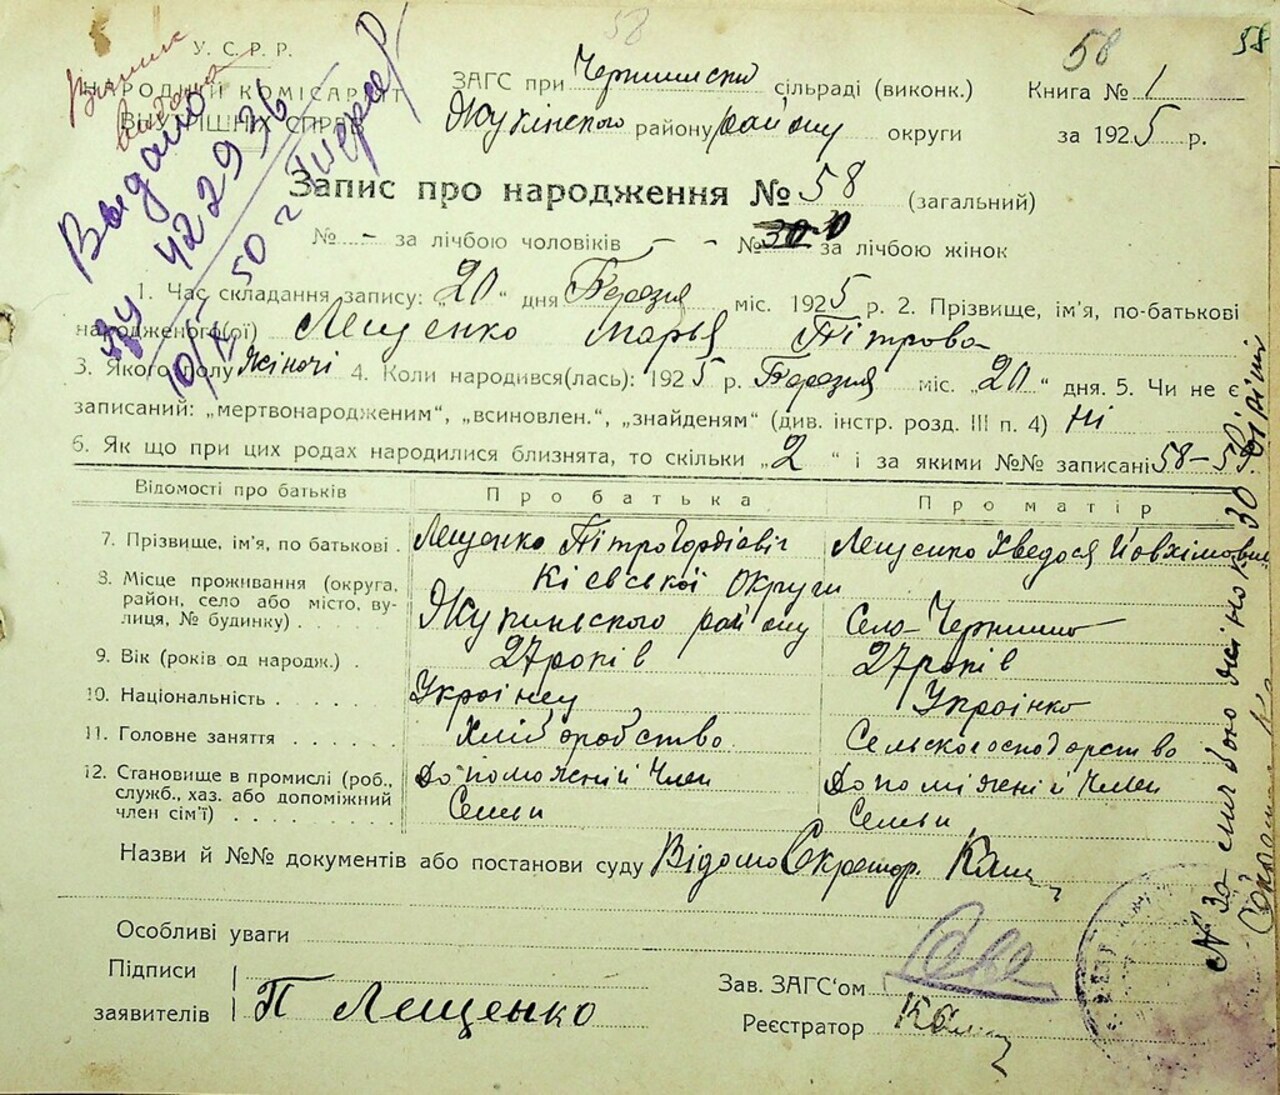 58 58 58
У. С. Р. Р.
НАРОДНИЙ КОМІСАРІЯТ
ВНУТРІШНІХ СПРАВ
Выдано
422936
10/IX 50 г
ЗАГС при сільраді (виконк.) Книга № 1
Жукінского району району округи за 1925 р.
Запис про народження № 58 (загальний)
№ - за лічбою чоловіків - - № 30 30 за лічбою жінок
1. Час складання запису: „20“ дня Березня міс. 1925 р. 2. Прізвище, ім'я, по-батькові
народженого(ої) Лещенко Марья Пітрова
3. Якого полу жіночі 4. Коли народився(лась): 1925 р. Березня міс. „20“ дня. 5. Чи не є
записаний: „мертвонародженим“, „всиновлен.“, „знайденям“ (див. інстр. розд. III п. 4) Ні
6. Як що при цих родах народилися близнята, то скільки „2“ і за якими №№ записані 58-59
Відомості про батьків Про батька Про матір
7. Прізвище, ім'я, по батькові . Лещенко Пітро Гордієвіч Лещенко Хведося
8. Місце проживання (округа, район, село або місто, вулиця, № будинку) . . . . Кієвської Округи
Жукиньского району Село
9. Вік (років од народж.) . 27 років 27 років
10. Національність . . . . . Украінец Украінка
11. Головне заняття . . . . . . Хліборобство Сельскогосподарство
12. Становище в промислі (роб., служб., хаз. або допоміжний член сім'ї) . . . . . . . Допоможений Член Допоміжений Член
Семьи Семьи
Назви й №№ документів або постанови суду Відомо Секретар.
Особливі уваги
Підписи
заявителів П Лещенко
Зав. ЗАГС'ом
Реєстратор
№ 30 за личбою жінок 30